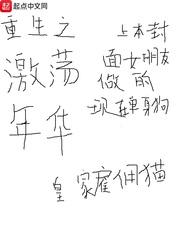 起点中文网
重生之
激荡
年华
上本封
面女朋友
做的
现连单身狗
皇家雇佣猫